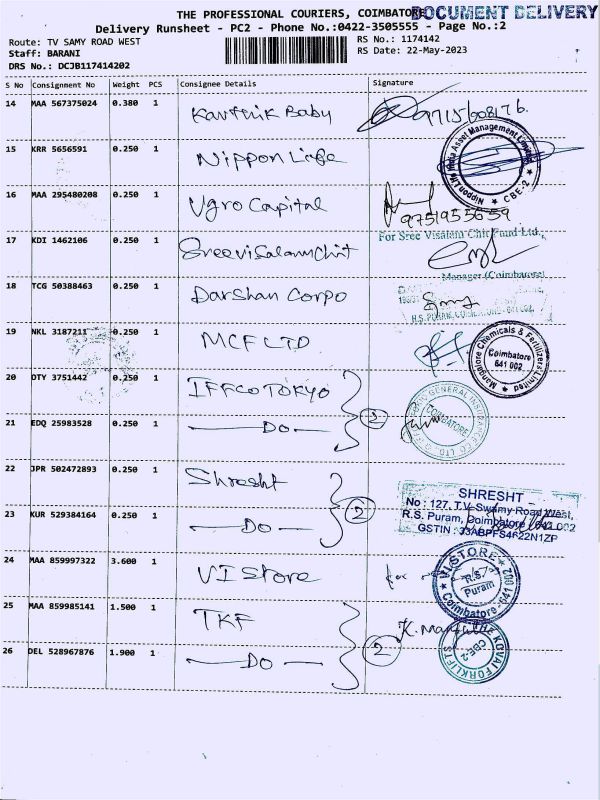 THE PROFESSIONAL COURIERS, COIMBATORE
DOCUMENT DELIVERY
Delivery Runsheet - PC2 - Phone No.:0422-3505555 - Page No.:2
Route: TV SAMY ROAD WEST
RS No.: 1174142
Staff: BARANI
RS Date: 22-May-2023
DRS No.: DCJB117414202
S No Consignment No Weight PCS Consignee Details Signature
14 MAA 567375024 0.380 1 Karthik Baby 9715608176
15 KRR 5656591 0.250 1 Nippon Life
Nippon Life India Asset Management Limited
CBE-2
16 MAA 295480208 0.250 1 Ugro Capital
9751955659
17 KDI 1462106 0.250 1 Sreevisalam Chit
For Sree Visalam Chit Fund Ltd.,
Manager (Coimbatore)
18 TCG 50388463 0.250 1 Darshan Corpo
19 NKL 3187211 0.250 1 MCF LTD
Mangalore Chemicals & Fertilizers Limited
Coimbatore
641 002
20 DTY 3751442 0.250 1 IFFCO TOKYO
2
21 EDQ 25983528 0.250 1 —Do—
COIMBATORE
22 JPR 502472893 0.250 1 Shresht
2
23 KUR 529384164 0.250 1 —Do—
SHRESHT
No : 127, T.V. Swamy Road West,
R.S. Puram, Coimbatore - 641 002
GSTIN : 33ABPFS4622N1ZP
24 MAA 859997322 3.600 1 VI Store
for
VI STORE
R.S.
Puram
Coimbatore-641 002
25 MAA 859985141 1.500 1 TKF
2
26 DEL 528967876 1.900 1 —Do—
THE KOVAI FORKLIFTS
CBE-2